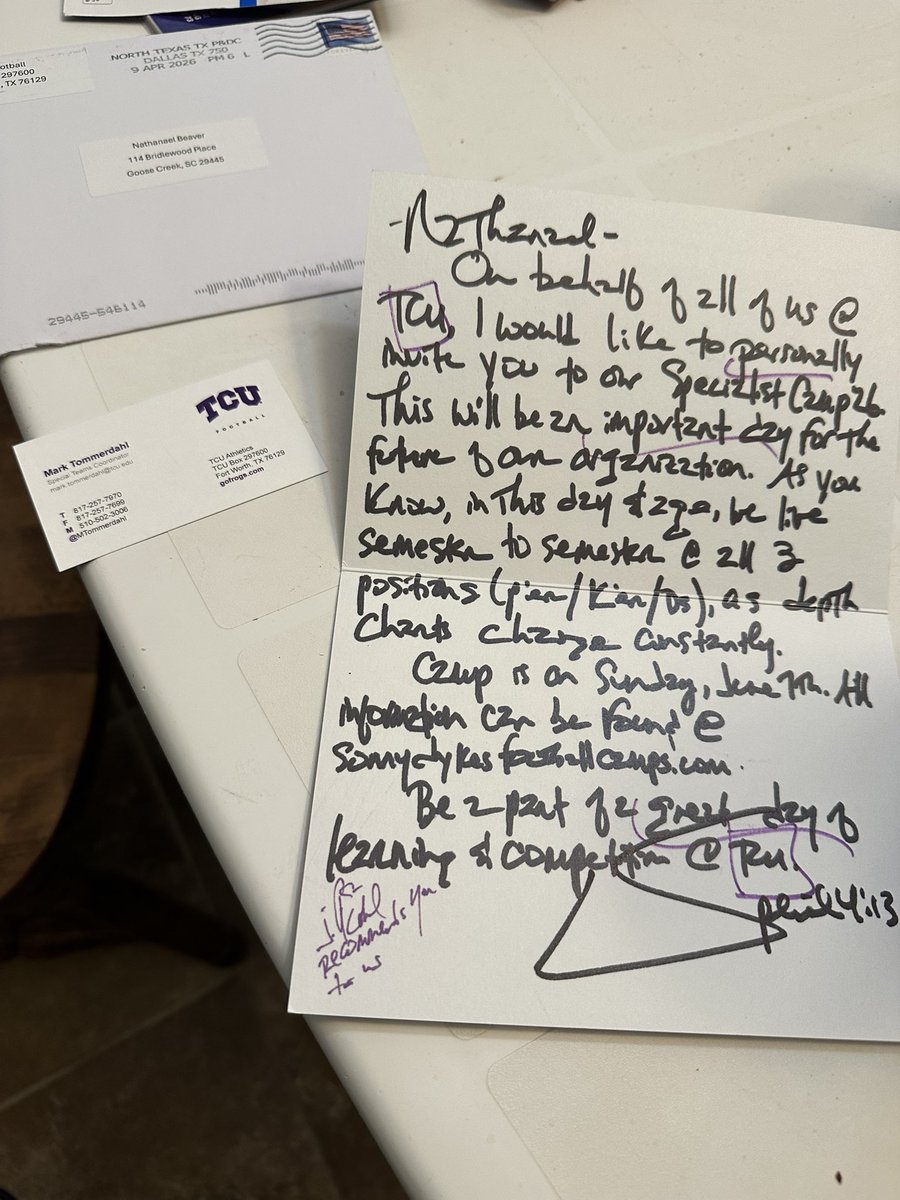 otball
297600
, TX 76129
NORTH TEXAS TX P&DC
DALLAS TX 750
9 APR 2026 PM 6 L
Nathanael Beaver
114 Bridlewood Place
Goose Creek, SC 29445
29445-545114
TCU
FOOTBALL
Mark Tommerdahl
Special Teams Coordinator
mark.tommerdahl@tcu.edu
T 817-257-7970
F 817-257-7699
M 510-502-3006
@MTommerdahl
TCU Athletics
TCU Box 297600
Fort Worth, TX 76129
gofrogs.com
-Nathanael-
On behalf of all of us @
TCU, I would like to personally
invite you to our Specialist Camp 26.
This will be an important day for the
future of our organization. As you
know, in this day & age, be live
semester to semester @ all 3
positions (p'er/k'er/DS), as depth
charts change constantly.
Camp is on Sunday, June 7th. All
information can be found @
sonnydykesfootballcamps.com.
Be a part of a great day of
learning & competition @ TCU.
Phil 4:13
recommends you
to us